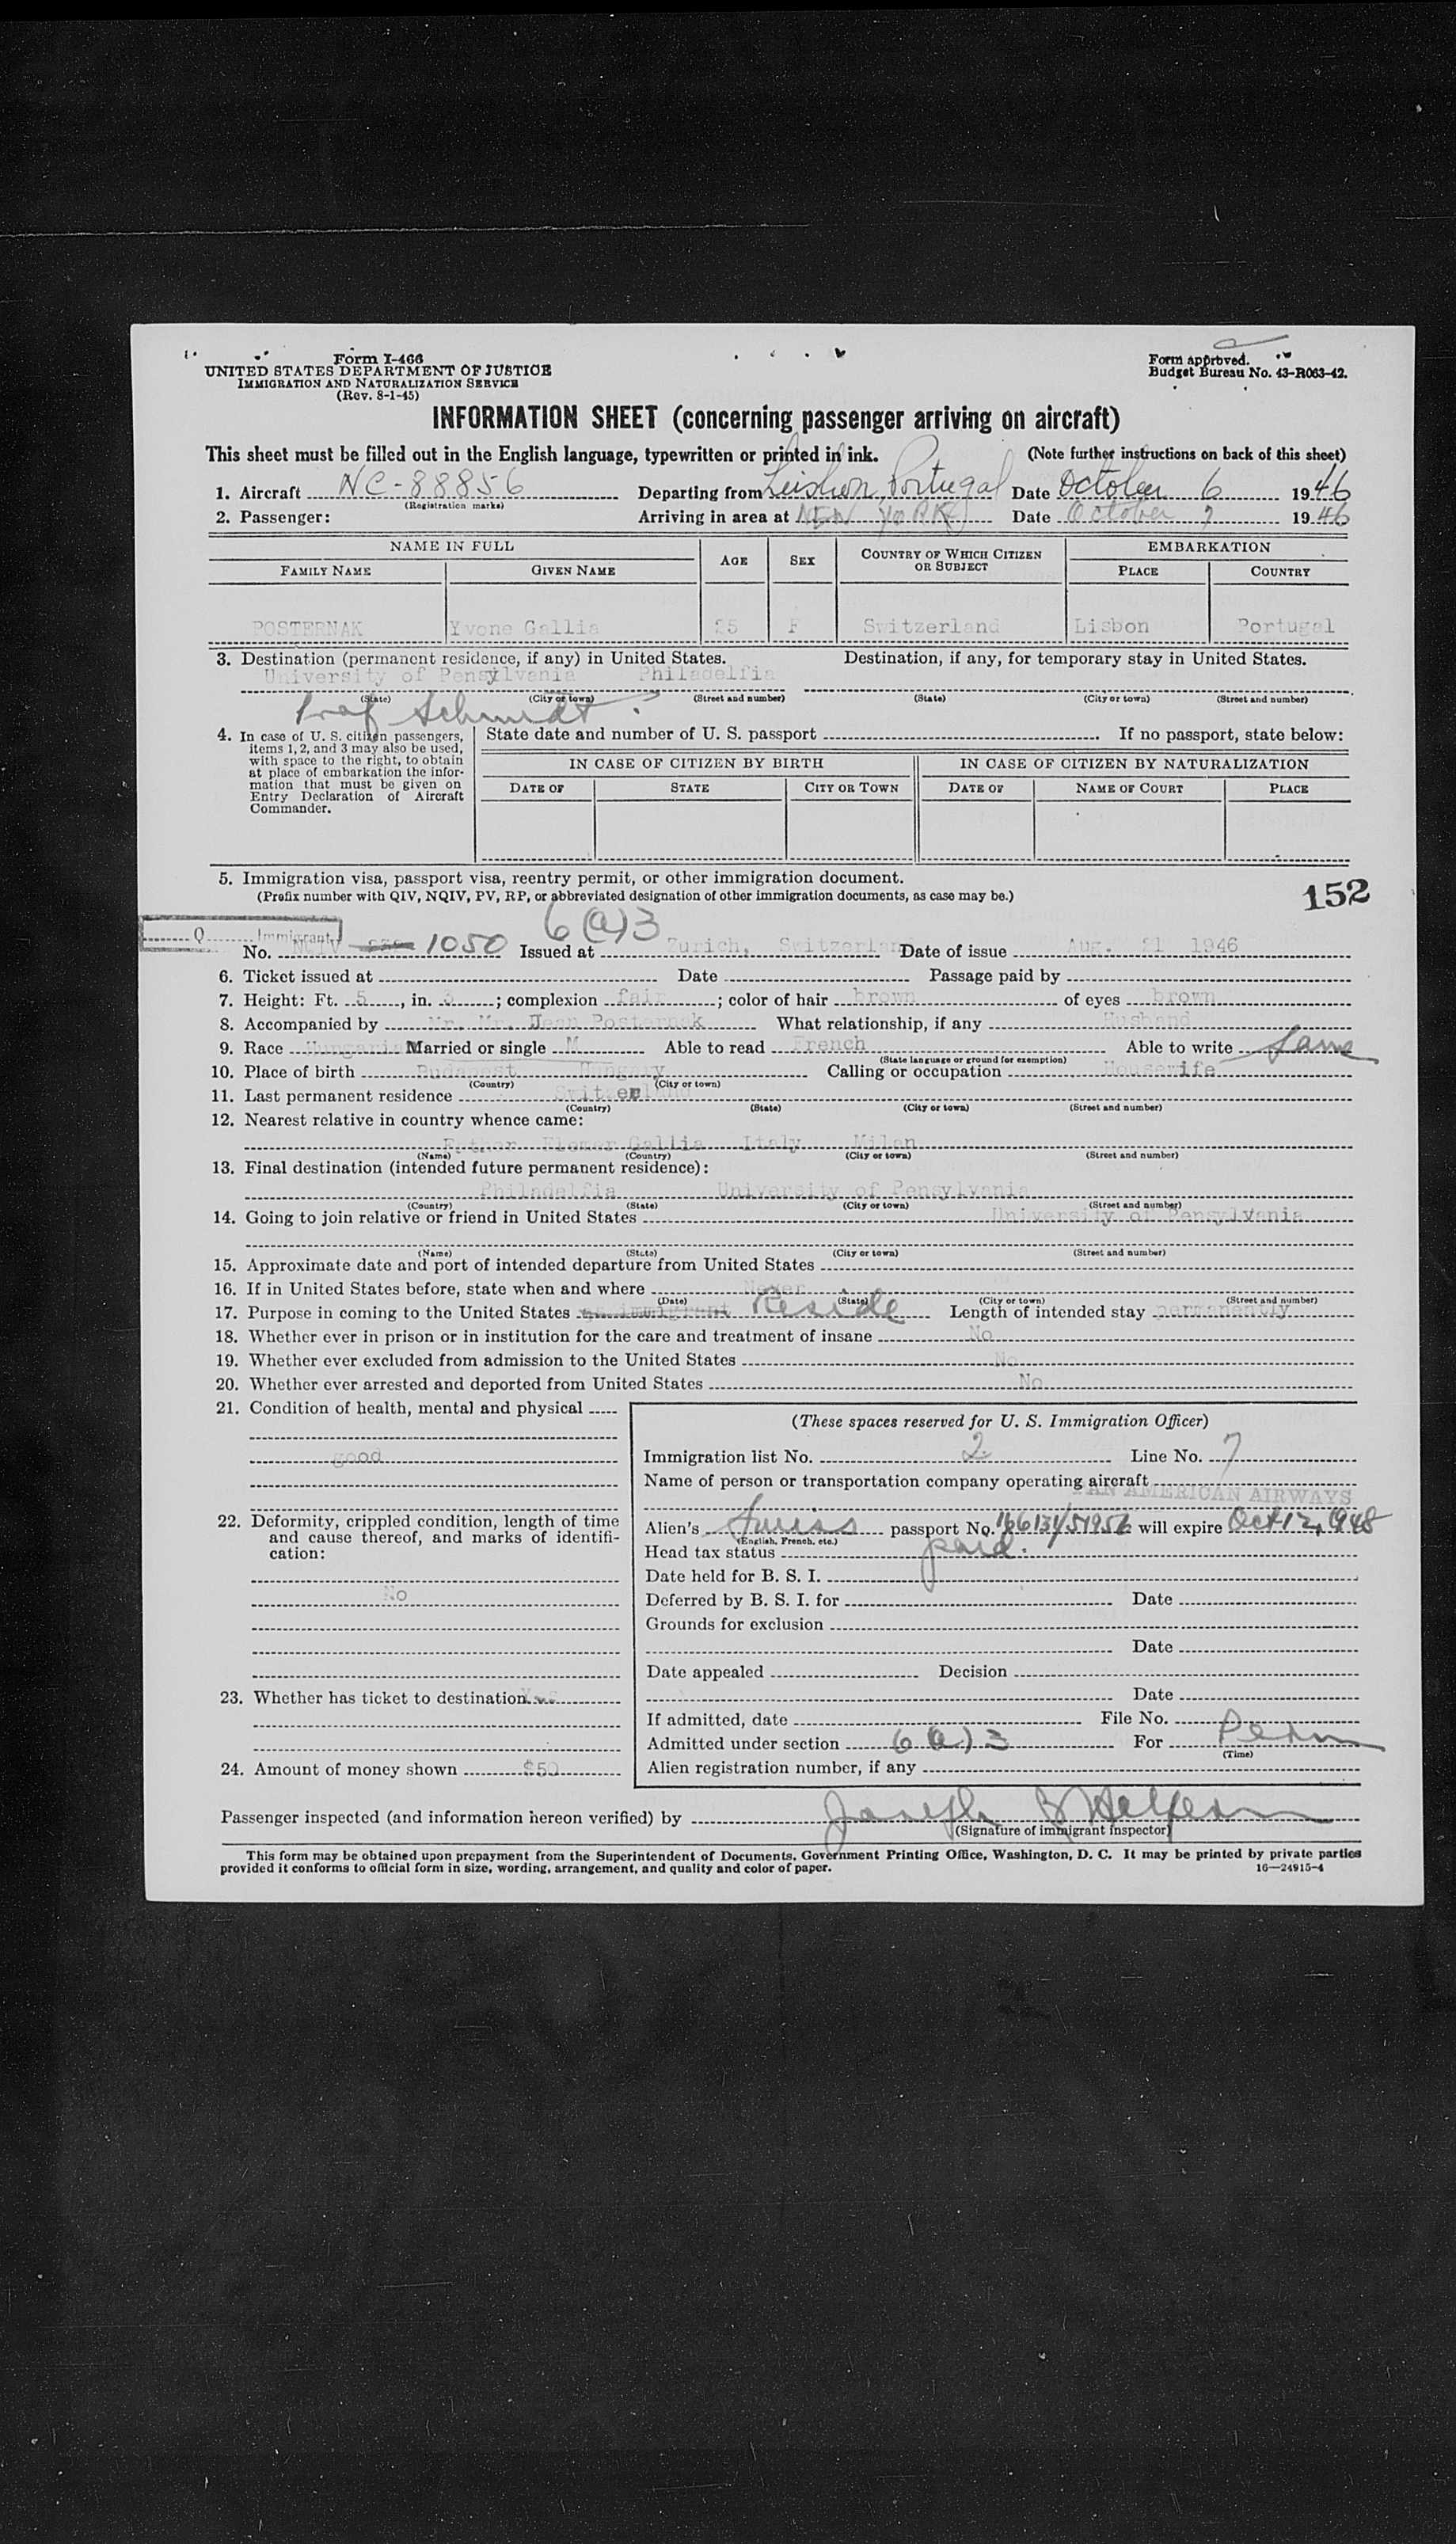 Form I-466
UNITED STATES DEPARTMENT OF JUSTICE
IMMIGRATION AND NATURALIZATION SERVICE
(Rev. 8-1-45)
Form approved.
Budget Bureau No. 43-R063-42.
INFORMATION SHEET (concerning passenger arriving on aircraft)
This sheet must be filled out in the English language, typewritten or printed in ink. (Note further instructions on back of this sheet)
1. Aircraft NC-88856 Departing from Portugal Date October 6 1946
(Registration marks)
2. Passenger: Arriving in area at NEW YORK Date October 7 1946
NAME IN FULL AGE SEX COUNTRY OF WHICH CITIZEN OR SUBJECT EMBARKATION
FAMILY NAME GIVEN NAME PLACE COUNTRY
POSTERNAK Yvone Gallia 25 F Switzerland Lisbon Portugal
3. Destination (permanent residence, if any) in United States. Destination, if any, for temporary stay in United States.
University of Pensylvania Philadelfia
(State) (City or town) (Street and number) (State) (City or town) (Street and number)
Prof Schmidt
4. In case of U. S. citizen passengers, items 1, 2, and 3 may also be used, with space to the right, to obtain at place of embarkation the information that must be given on Entry Declaration of Aircraft Commander.
State date and number of U. S. passport If no passport, state below:
IN CASE OF CITIZEN BY BIRTH IN CASE OF CITIZEN BY NATURALIZATION
DATE OF STATE CITY OR TOWN DATE OF NAME OF COURT PLACE
5. Immigration visa, passport visa, reentry permit, or other immigration document.
(Prefix number with QIV, NQIV, PV, RP, or abbreviated designation of other immigration documents, as case may be.)
152
6(a)3
Q Immigrant
No. 1050 Issued at Zurich, Switzerland Date of issue Aug. 21 1946
6. Ticket issued at Date Passage paid by
7. Height: Ft. 5, in. 3; complexion fair; color of hair brown of eyes brown
8. Accompanied by Mr. Mr. Jean Posternak What relationship, if any Husband
9. Race Hungarian Married or single M Able to read French Able to write same
(State language or ground for exemption)
10. Place of birth Budapest Hungary Calling or occupation Housewife
(Country) (City or town)
11. Last permanent residence Switzerland
(Country) (State) (City or town) (Street and number)
12. Nearest relative in country whence came:
Father Gallia Italy Milan
(Name) (Country) (City or town) (Street and number)
13. Final destination (intended future permanent residence):
Philadelfia University of Pensylvania
(Country) (State) (City or town) (Street and number)
14. Going to join relative or friend in United States University of Pensylvania
(Name) (State) (City or town) (Street and number)
15. Approximate date and port of intended departure from United States
16. If in United States before, state when and where Never
(Date) (State) (City or town) (Street and number)
17. Purpose in coming to the United States as immigrant Reside Length of intended stay permanently
18. Whether ever in prison or in institution for the care and treatment of insane No
19. Whether ever excluded from admission to the United States No
20. Whether ever arrested and deported from United States No
21. Condition of health, mental and physical
good
22. Deformity, crippled condition, length of time and cause thereof, and marks of identification:
No
23. Whether has ticket to destination Yes
24. Amount of money shown $50
(These spaces reserved for U. S. Immigration Officer)
Immigration list No. 2 Line No. 7
Name of person or transportation company operating aircraft
PAN AMERICAN AIRWAYS
Alien's Swiss passport No. will expire Oct 12, 1948
(English, French, etc.)
Head tax status paid.
Date held for B. S. I.
Deferred by B. S. I. for Date
Grounds for exclusion
Date
Date appealed Decision
Date
If admitted, date File No.
Admitted under section 6(a)3 For Perm
(Time)
Alien registration number, if any
Passenger inspected (and information hereon verified) by Joseph B Halpern
(Signature of immigrant inspector)
This form may be obtained upon prepayment from the Superintendent of Documents, Government Printing Office, Washington, D. C. It may be printed by private parties
provided it conforms to official form in size, wording, arrangement, and quality and color of paper.
16—24915-4